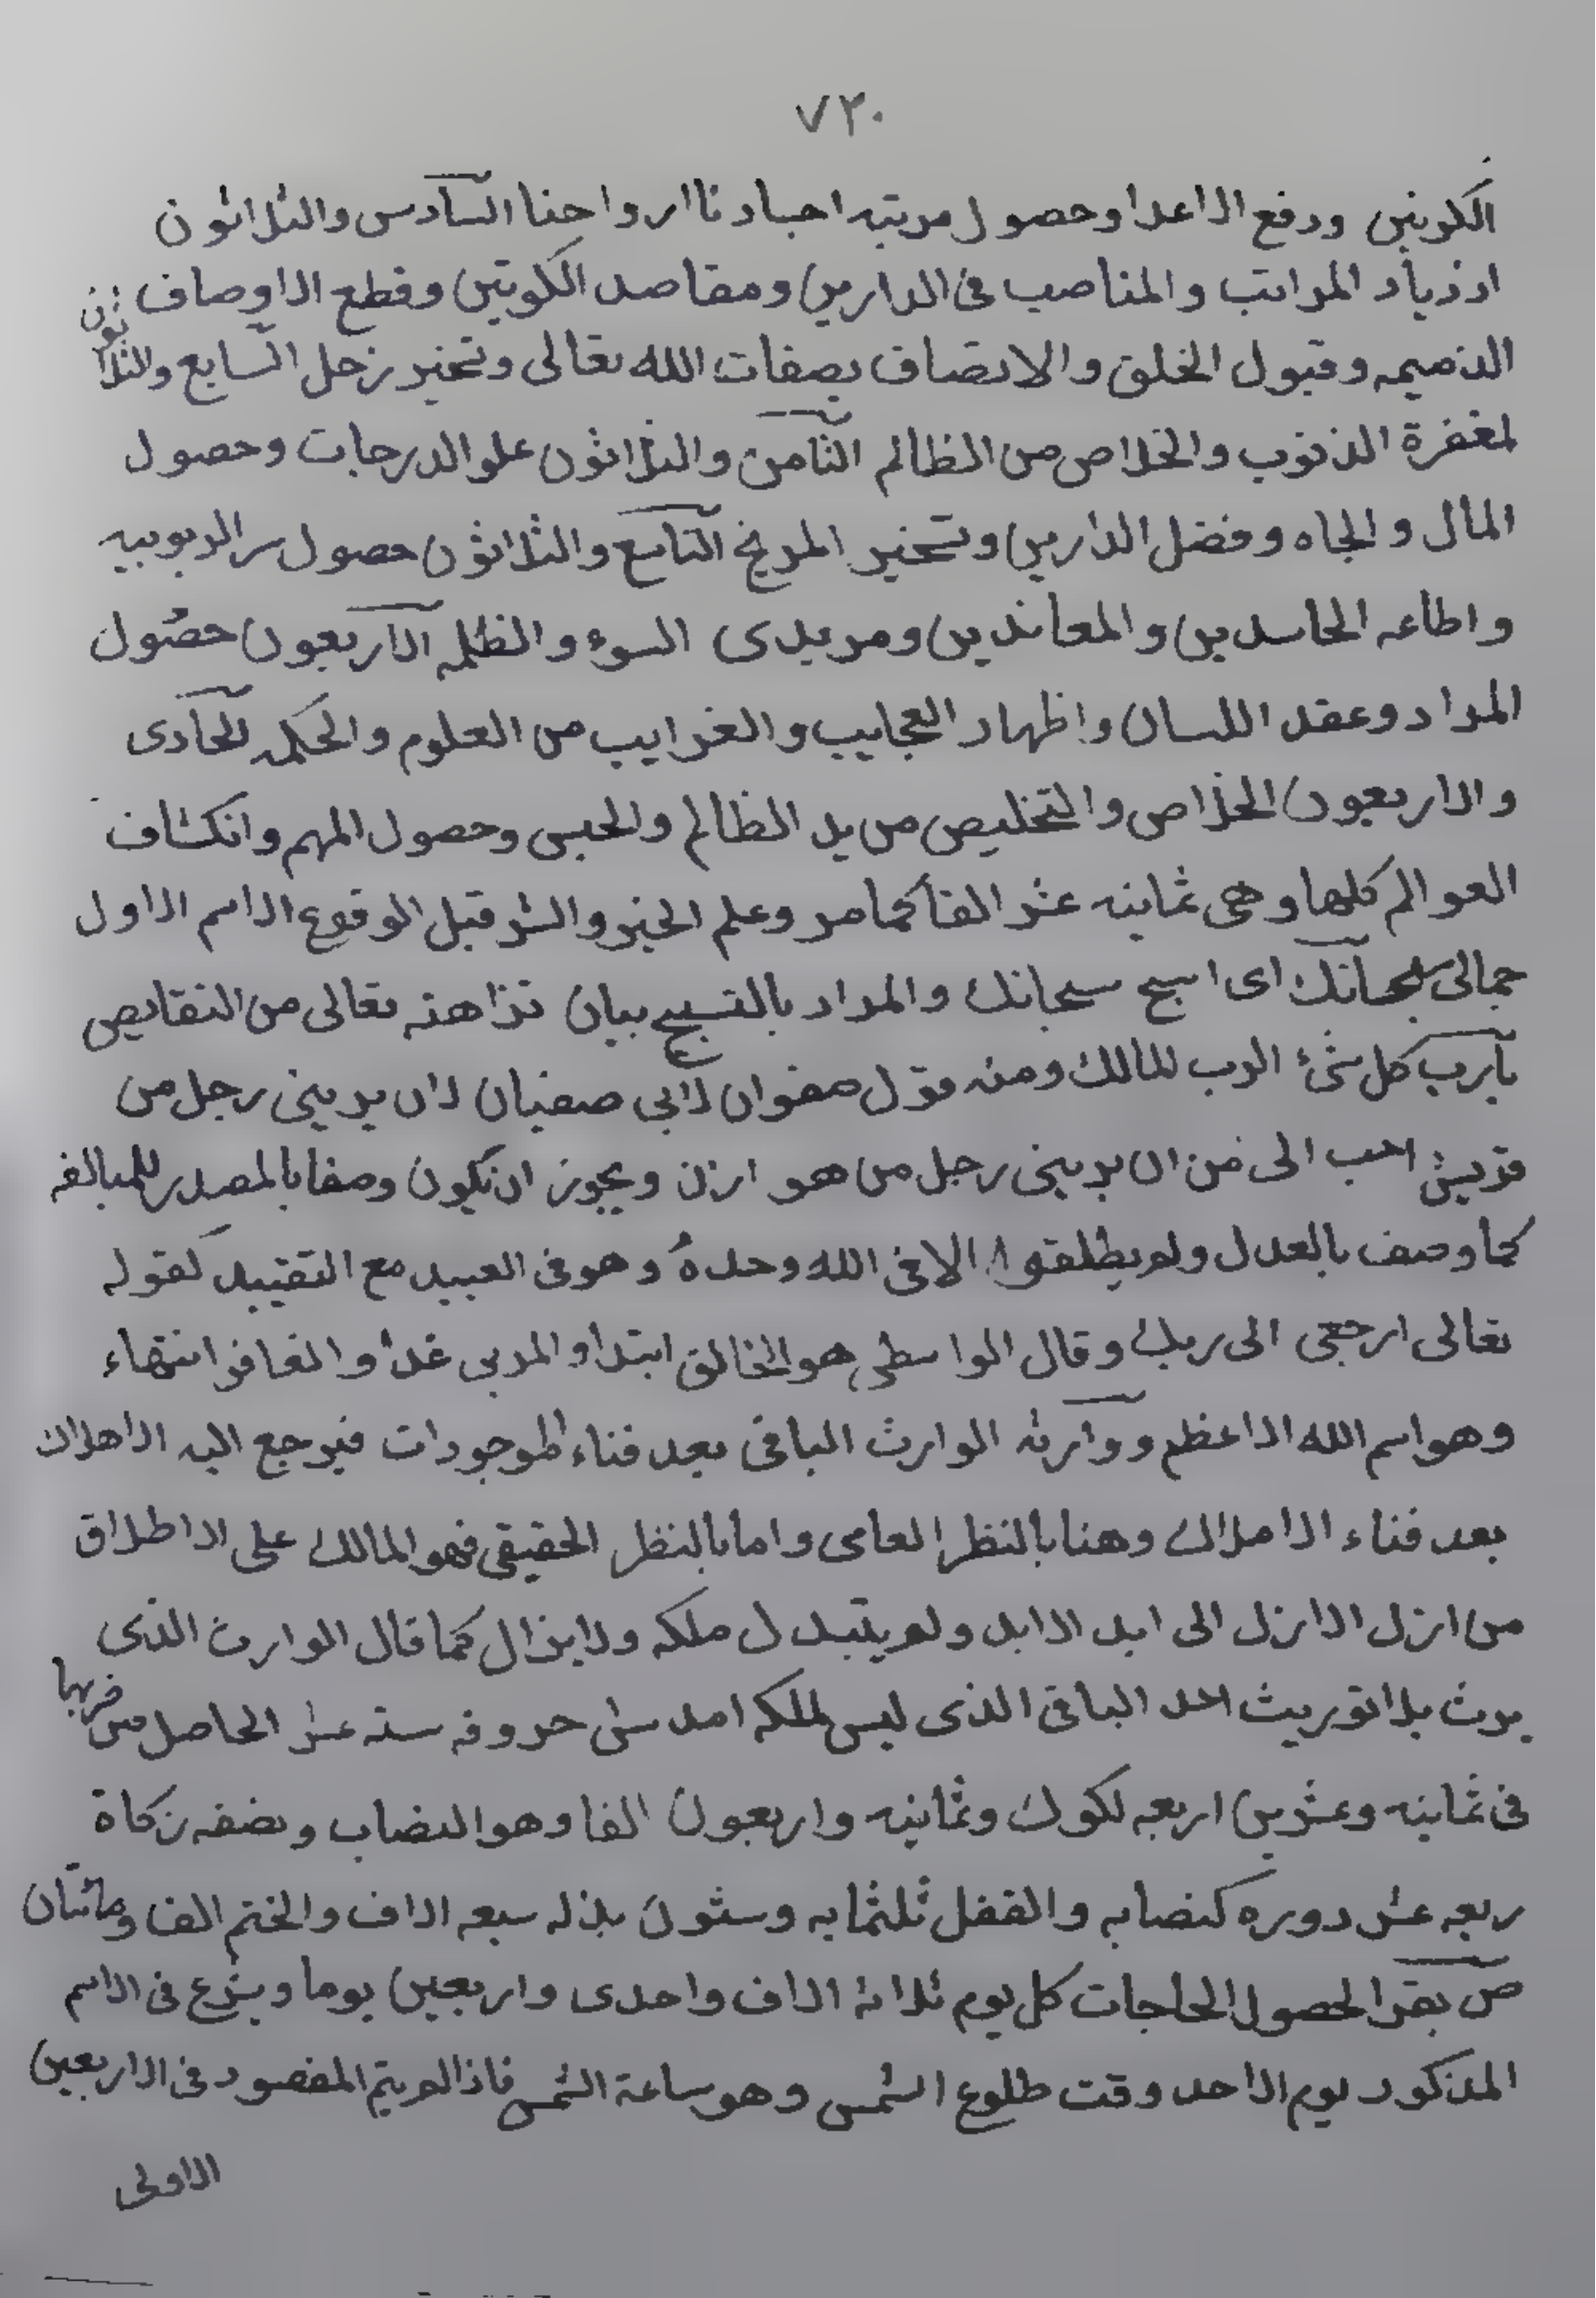 ٧٣٠
الكونين ودفع الاعدا وحصول مرتبه اجسادنا ارواحنا السادس والثلاثون
ازدياد المراتب والمناصب فى الدارين ومقاصد الكونين وقطع الاوصاف
الذميمه وقبول الخلق والاتصاف بصفات الله تعالى وتسخير زحل السابع والثلاثون
لمغفرة الذنوب والخلاص من الظالم الثامن والثلاثون علو الدرجات وحصول
المال والجاه وفضل الدارين وتسخير المريخ التاسع والثلاثون حصول سر الربوبيه
واطاعه الحاسدين والمعاندين ومريدى السوء والظلمه الاربعون حصول
المراد وعقد اللسان واظهار العجايب والغرايب من العلوم والحكمه الحادى
والاربعون الخلاص والتخليص من يد الظالم والحبس وحصول المهم وانكشاف
العوالم كلها وهى ثمانيه عشر الفا كما مر وعلم الخير والشر قبل الوقوع الاسم الاول
جمالى سبحانك اى اسبح سبحانك والمراد بالتسبيح بيان نزاهته تعالى من النقايص
يارب كل شئ الرب للمالك ومنه قول صفوان لابى صفيان لان يربينى رجل من
قريش احب الى من ان يربينى رجل من هوازن ويجوز ان يكون وصفا بالمصدر للمبالغه
كما وصف بالعدل ولم يطلقوا الا فى الله وحدهُ وهو فى العبيد مع التقييد كقوله
تعالى ارجعى الى ربك وقال الواسطى هو الخالق ابتدا والمربى غدا والغافر انتهاء
وهو اسم الله الاعظم ووارثه الوارث الباقى بعد فناء الموجودات فيرجع اليه الاملاك
بعد فناء الاملاك وهنا بالنظر العامى واما بالنظر الحقيقى فهو المالك على الاطلاق
من ازل الازل الى ابد الابد ولم يتبدل ملكه ولا يزال كما قال الوارث الذى
يرث بلا توريث احد الباقى الذى ليس لملكه امد سنى حروفه سته عشر الحاصل من ضربها
فى ثمانيه وعشرين اربعه لكوك وثمانيه واربعون الفا وهو النصاب ونصفه زكاة
ربعه عشر دوره كنصابه والقفل ثلثمايه وستون بذله سبعه الاف والختم الف ومائتان
ص يقرا لحصول الحاجات كل يوم ثلاثه الاف واحدى واربعين يوما ويشرع فى الاسم
المذكور يوم الاحد وقت طلوع الشمس وهو ساعة الشمس فاذا لم يتم المقصود فى الاربعين
الاولى